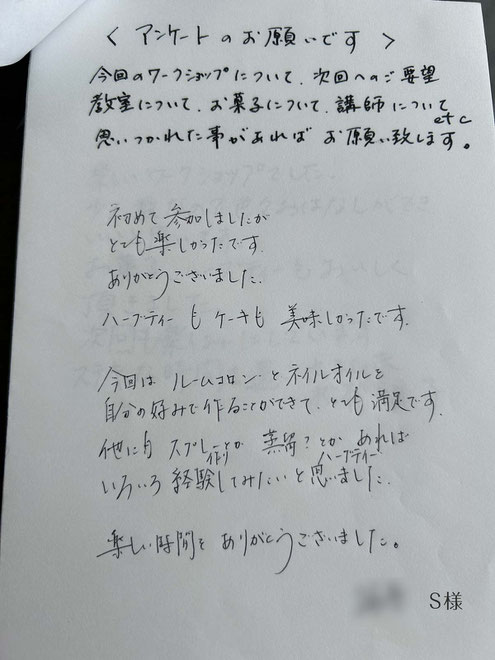 < アンケートのお願いです >
今回のワークショップについて、次回へのご要望
教室について、お菓子について、講師について
etc
思いつかれた事があれば お願い致します。
初めて参加しましたが
とても楽しかったです。
ありがとうございました。
ハーブティーも ケーキも 美味しかったです。
今回は ルームコロン と ネイルオイルを
自分の好みで作ることができて、とても満足です。
他にも スプレー作りとか 蒸留?とか ハーブティー あれば
いろいろ 経験してみたいと思いました。
楽しい時間を ありがとうございました。
S様